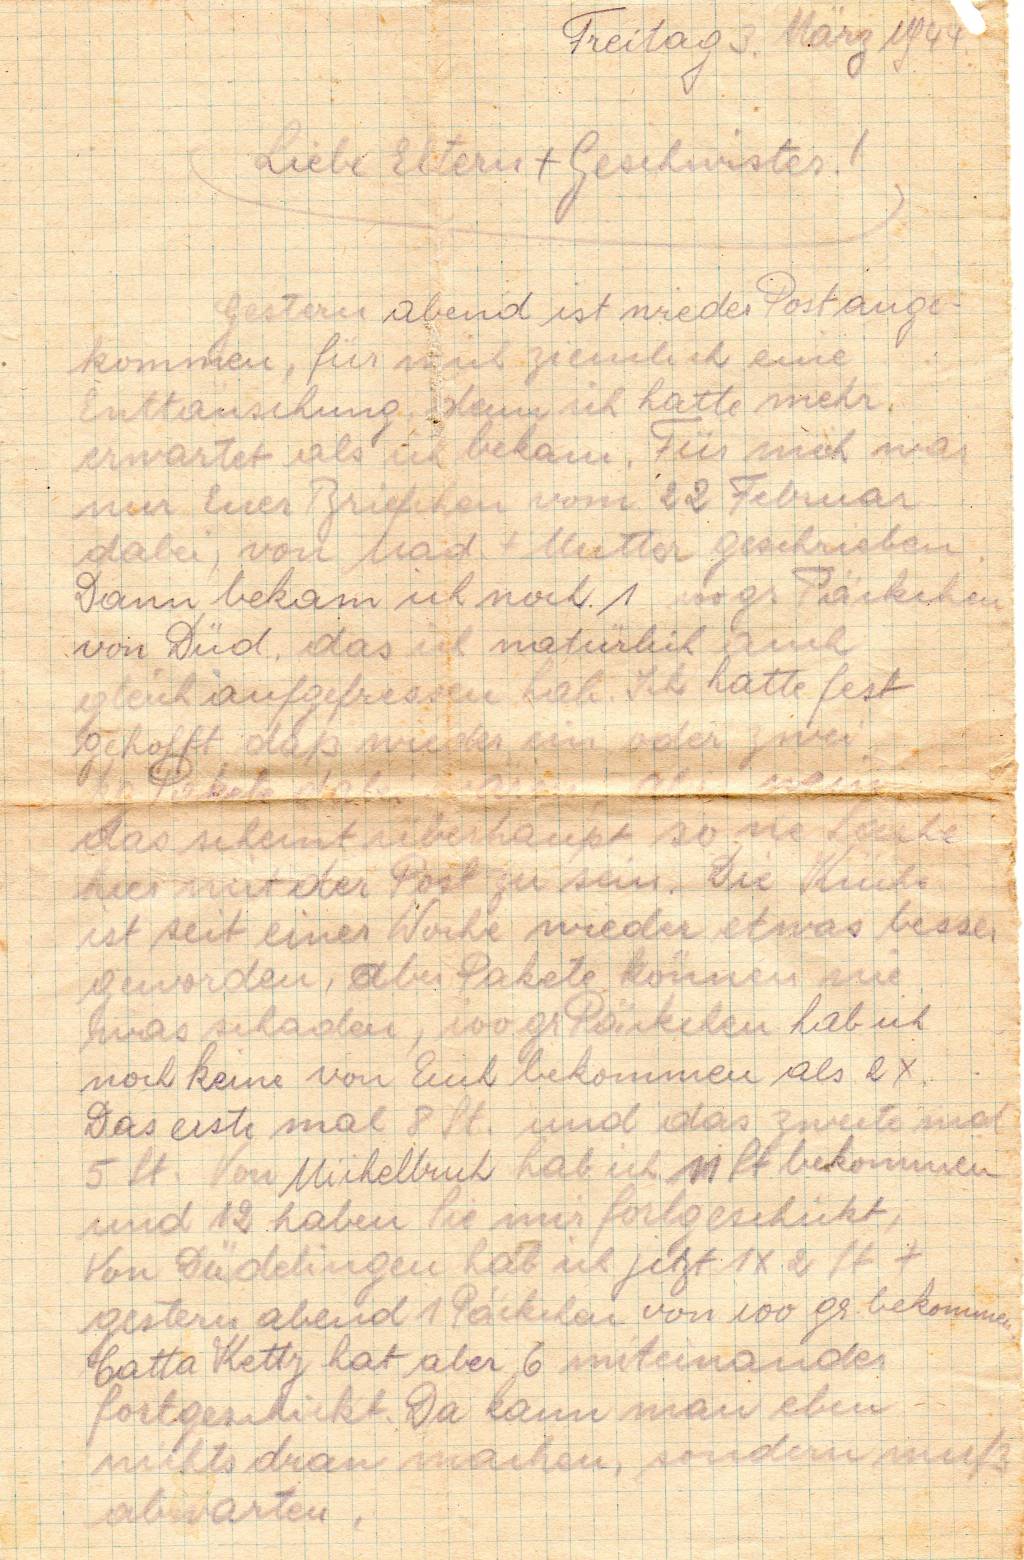 Freitag 3. März 1944.
Liebe Eltern + Geschwister!
Gestern abend ist wieder Post ange-
kommen, für mich ziemlich eine
Enttäuschung, denn ich hatte mehr
erwartet als ich bekam. Für mich war
nur Euer Briefchen vom 22 Februar
dabei, von Mad. + Mutter geschrieben.
Dann bekam ich noch 1 100 gr. Päckchen
von Düd. das ich natürlich auch
gleich aufgefressen hab. Ich hatte fest
gehofft daß wieder ein oder zwei
Pakete dabei wären, aber nein
das scheint überhaupt so ne Sache
hier mit der Post zu sein. Die Küche
ist seit einer Woche wieder etwas besser
geworden, aber Pakete können nie
was schaden, 100 gr Päckchen hab ich
noch keine von Euch bekommen als 2 x.
Das erste mal 8 St. und das zweite mal
5 St. Von Michelbuch hab ich 11 St bekommen
und 12 haben Sie mir fortgeschickt,
Von Düdelingen hab ich jetzt 1 x 2 St +
gestern abend 1 Päckchen von 100 gr bekommen
Catta Ketty hat aber 6 miteinander
fortgeschickt. Da kann man eben
nichts dran machen, sondern muß
abwarten.